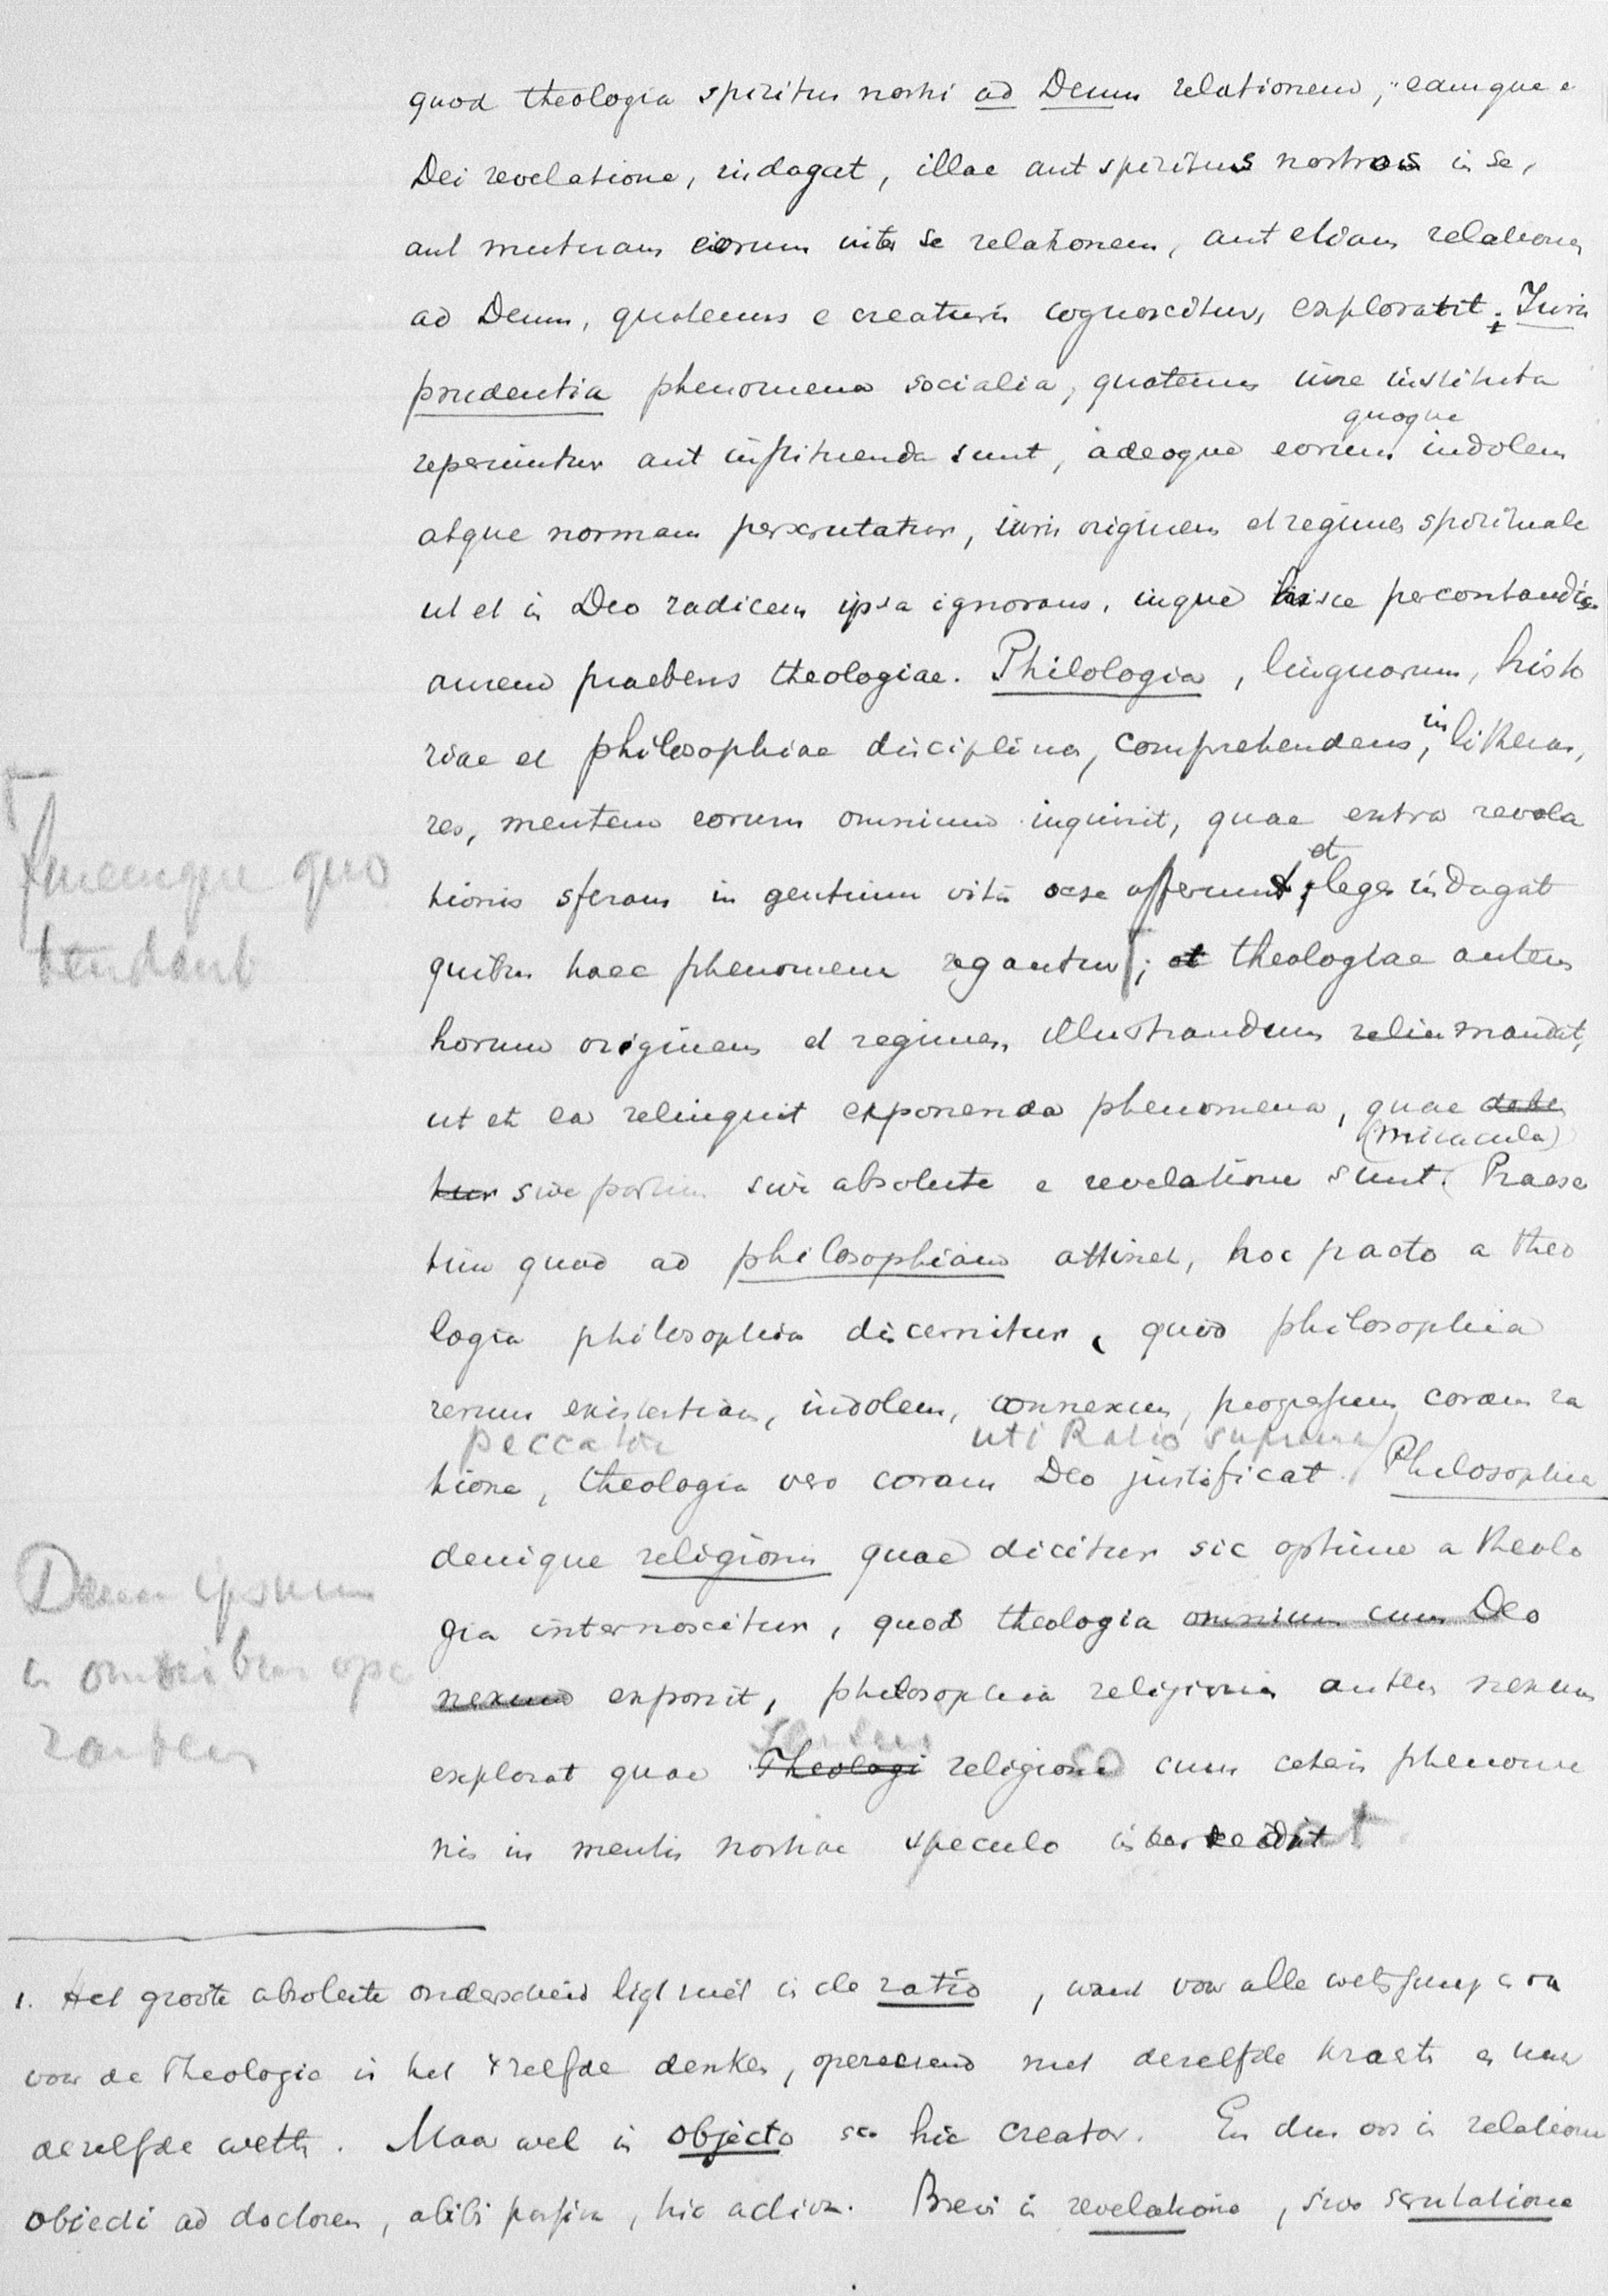 quod theologia spiritus nostri ad Deum relationem, eamque e
Dei revelatione, indagat, illae aut spiritus nostros in se,
aut mutuam eorum inter se relationem, aut etiam relationem
ad Deum, quatenus e creaturis cognoscitur, explorat. Juris
prudentia phenomena socialia, quatenus iure instituta
quoque
reperiuntur aut instituenda sunt, adeoque eorum indolem
atque normam perscrutatur, iuris originem et regimen spirituale
ut et in Deo radicem ipsa ignorans, inque hisce percontandis
aurem praebens theologiae. Philologia, linguarum, histo
riae et philosophiae disciplinas, comprehendens, in litteras,
res, mentem eorum omnium inquirit, quae extra revela
tionis sferam in gentium vita sese afferunt, et leges indagat
quibus haec phenomena regantur; et theologiae autem
quo
tendant
horum originem et regimen illustrandum relin mandat,
ut et ea relinquit exponenda phenomena, quae debe
(miracula)
tur sive partim sive absolute e revelatione sunt. Praeser
tim quod ad philosophiam attinet, hoc pacto a theo
logia philosophia discernitur, quod philosophia
rerum existentiam, indolem, connexum, progressum coram ra
peccator uti Ratio suprema
tione, theologia vero coram Deo justificat. Philosophia
denique religionis quae dicitur sic optime a theolo
gia internoscitur, quod theologia omnium cum Deo
Deum ipsum
in omnibus ope
rantem
nexum exponit, philosophia religionis autem nexum
explorat quae Theologi religione cum ceteris phenome
nis in mentis nostrae speculo intercedat
1. Het groote absolute onderscheid ligt niet in de ratio, want voor alle wetensch. en
voor de Theologie is het 't zelfde denken, opereerend met dezelfde kracht en naar
dezelfde wetten. Maar wel in objecto sc. hic creator. En dus ook in relatione
obiecti ad doctorem, alibi passiva, hic activa. Brevi in revelatione, sive scrutatione